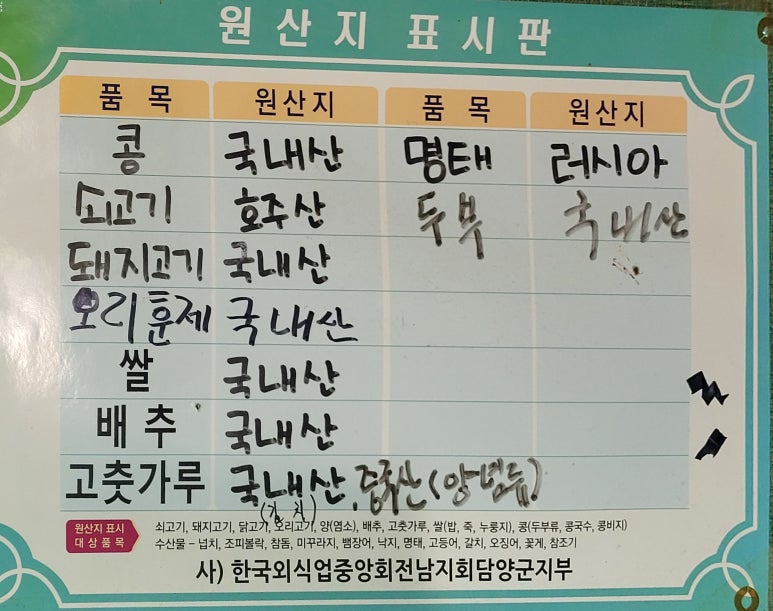 원산지 표시판
품 목 원산지 품 목 원산지
콩 국내산 명태 러시아
쇠고기 호주산 두부 국내산
돼지고기 국내산
오리훈제 국내산
쌀 국내산
배추 국내산
고춧가루 국내산, 중국산(양념등)
(김치)
원산지 표시 대상 품목
쇠고기, 돼지고기, 닭고기, 오리고기, 양(염소), 배추, 고춧가루, 쌀(밥, 죽, 누룽지), 콩(두부류, 콩국수, 콩비지)
수산물 - 넙치, 조피볼락, 참돔, 미꾸라지, 뱀장어, 낙지, 명태, 고등어, 갈치, 오징어, 꽃게, 참조기
사) 한국외식업중앙회전남지회담양군지부